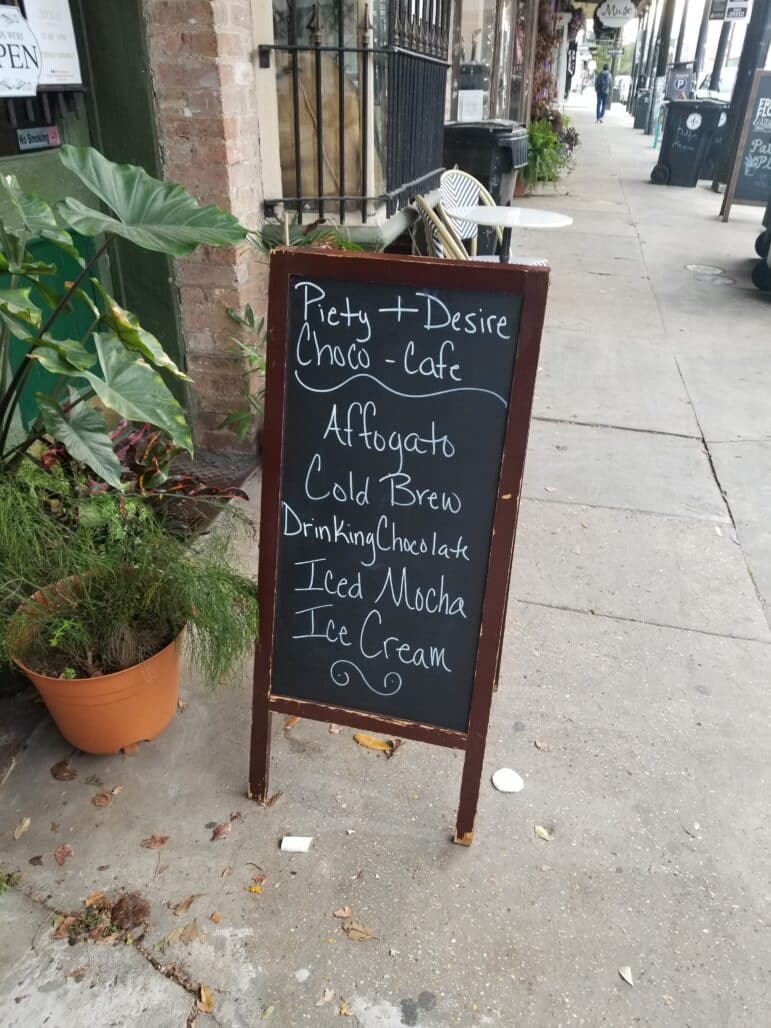 PEN
No Smoking
Muse
P
Piety + Desire
Choco - Cafe
Affogato
Cold Brew
Drinking Chocolate
Iced Mocha
Ice Cream